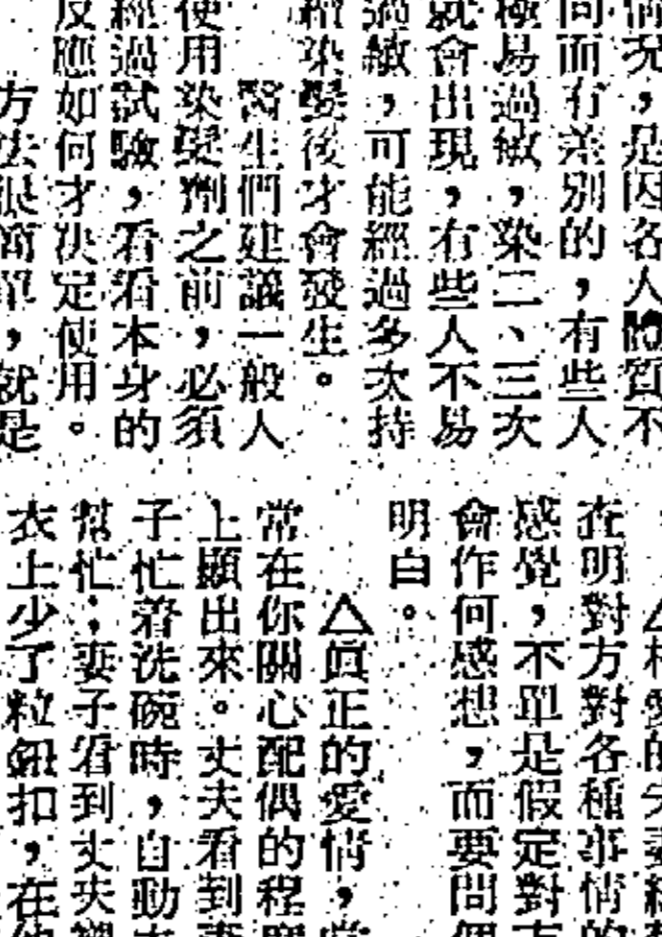 情况，是因各人體質不
同而有差別的，有些人
極易過敏，染二、三次
就會出現，有些人不易
過敏，可能經過多次持
續染髮後才會發生。
醫生們建議一般人
使用染髮劑之前，必須
經過試驗，看看本身的
反應如何才决定使用。
方法很簡單，就是
△相愛的夫妻
在明對方對各種事情的
感覺，不單是假定對方
會作何感想，而要問個
明白。
△眞正的愛情，
常在你關心配偶的程
上顯出來。丈夫看到
子忙着洗碗時，自動
幫忙；妻子看到丈夫
衣上少了粒鈕扣，在